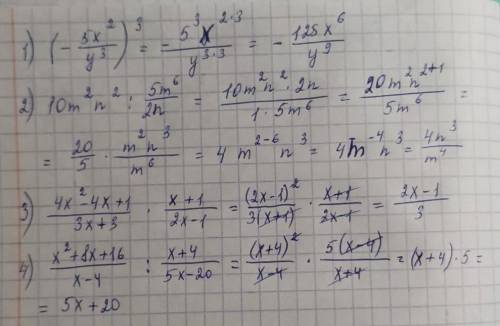 1) (- 5x²/y³)³ = - 5³x^(2·3)/y^(3·3) = - 125x⁶/y⁹
2) 10m²n² : 5m⁶/2n = 10m²n²·2n/1·5m⁶ = 20m²n^(2+1)/5m⁶ =
= 20/5 · m²n³/m⁶ = 4 m^(2-6) n³ = 4m⁻⁴n³ = 4n³/m⁴
3) 4x²-4x+1/3x+3 · x+1/2x-1 = (2x-1)²/3(x+1) · x+1/2x-1 = 2x-1/3
4) x²+8x+16/x-4 : x+4/5x-20 = (x+4)²/x-4 · 5(x-4)/x+4 = (x+4)·5 =
= 5x+20